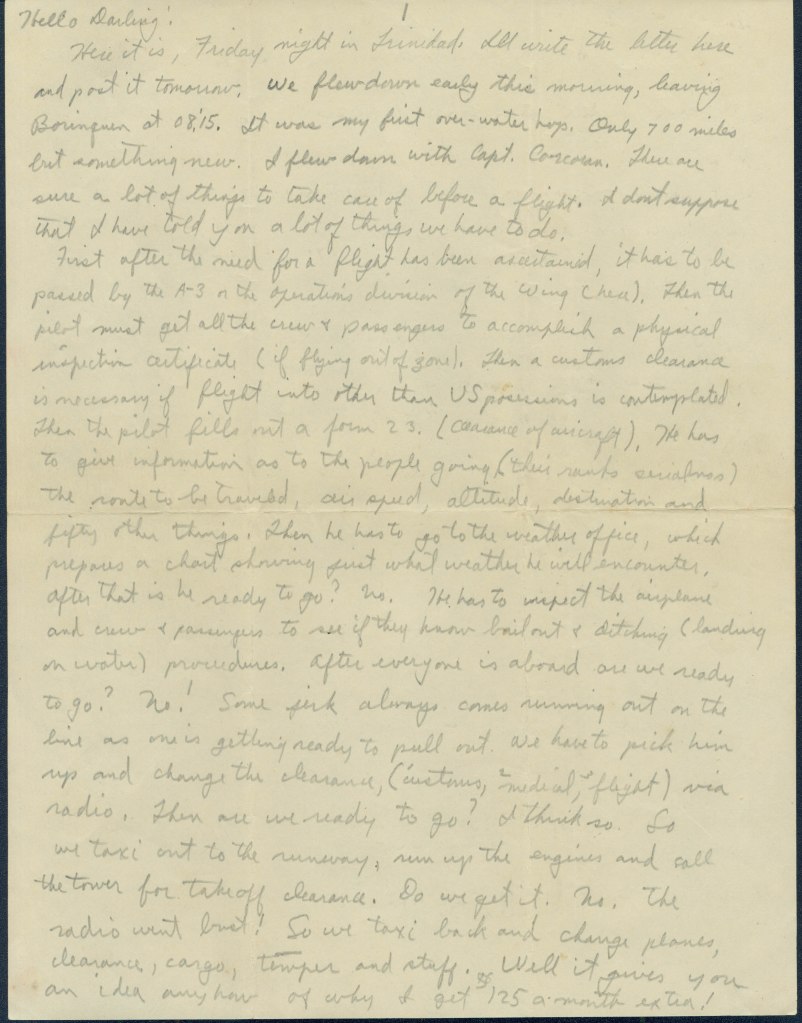 1
Hello Darling!
Here it is, Friday night in Trinidad. I'll write the letter here
and post it tomorrow. We flew down early this morning, leaving
Borinquen at 08:15. It was my first over-water hop. Only 700 miles
but something new. I flew down with Capt. Corcoran. There are
sure a lot of things to take care of before a flight. I don't suppose
that I have told you on a lot of things we have to do.
First after the need for a flight has been ascertained, it has to be
passed by the A-3 or the operations division of the Wing (here). Then the
pilot must get all the crew & passengers to accomplish a physical
inspection certificate (if flying out of zone). Then a customs clearance
is necessary if flight into other than US posessions is contemplated.
Then the pilot fills out a form 23. (clearance of aircraft). He has
to give information as to the people going (their ranks serial nos)
the route to be traveled, air speed, altitude, destination and
fifty other things. Then he has to go to the weather office, which
prepares a chart showing just what weather he will encounter.
After that is he ready to go? No. He has to inspect the airplane
and crew & passengers to see if they know bailout & ditching (landing
on water) procedures. After everyone is aboard are we ready
to go? No! Some jerk always comes running out on the
line as one is getting ready to pull out. We have to pick him
up and change the clearance, (customs, medical, flight) via
radio. Then are we ready to go? I think so. So
we taxi out to the runway, run up the engines and call
the tower for takeoff clearance. Do we get it. No. The
radio went bust! So we taxi back and change planes,
clearance, cargo, temper and stuff. Well it gives you
an idea anyhow of why I get $125 a month extra!